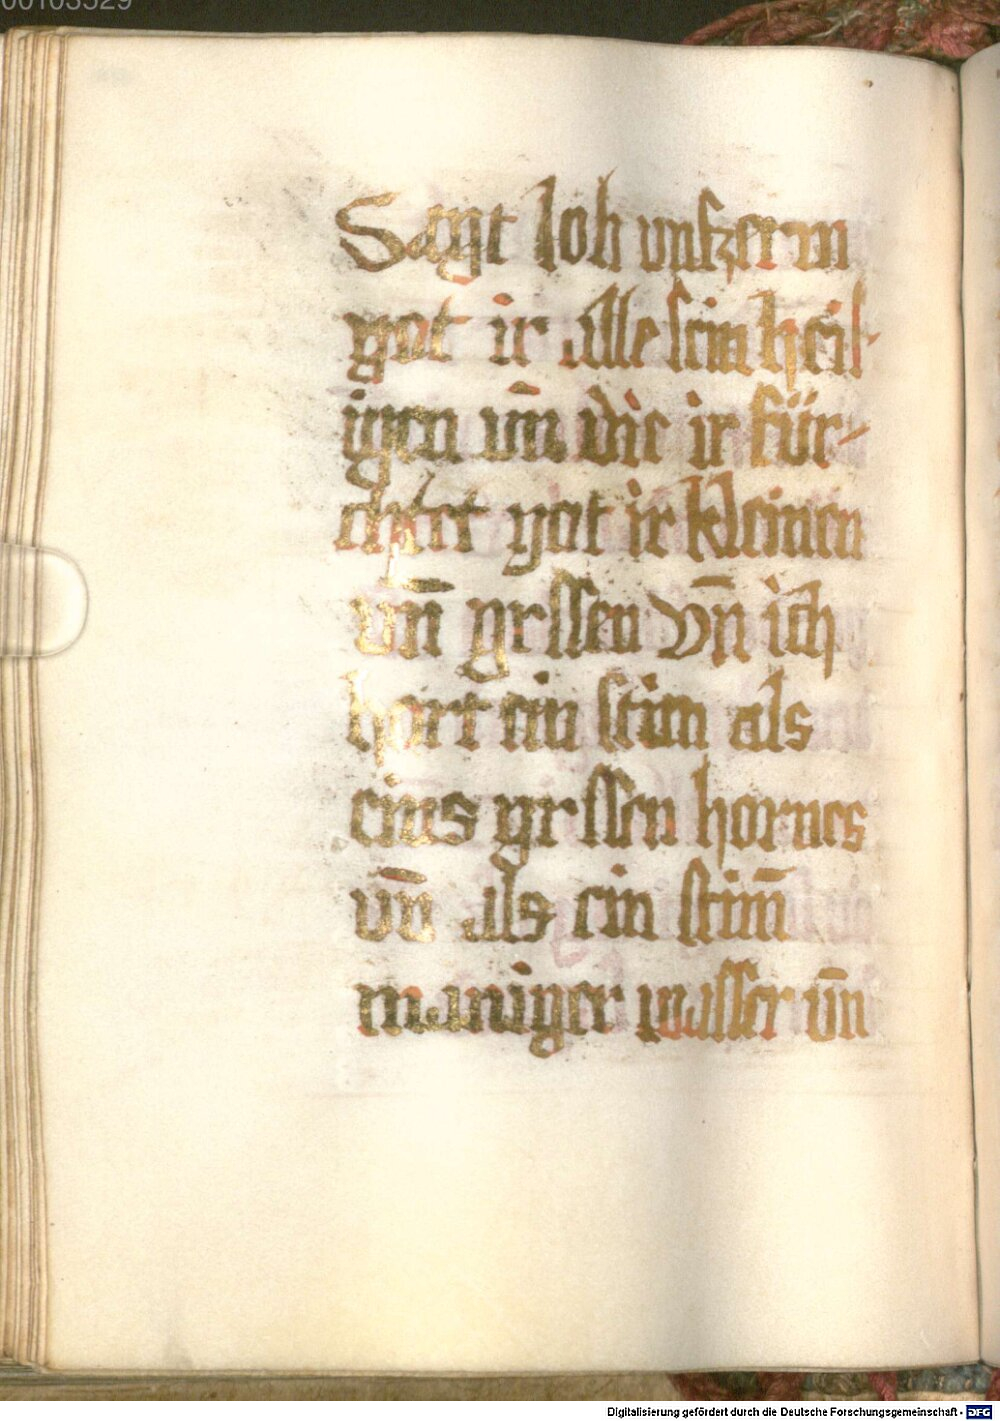 00103529
Sagt loh vnszerm
got ir alle sein heil-
igen vn̄ die ir für-
chtet got ir kleinen
vn̄ grssen Vn̄ ich
hort ein stim als
eins grssen hornes
vn̄ als ein stim̄
maniger wasser vn̄
Digitalisierung gefördert durch die Deutsche Forschungsgemeinschaft - DFG